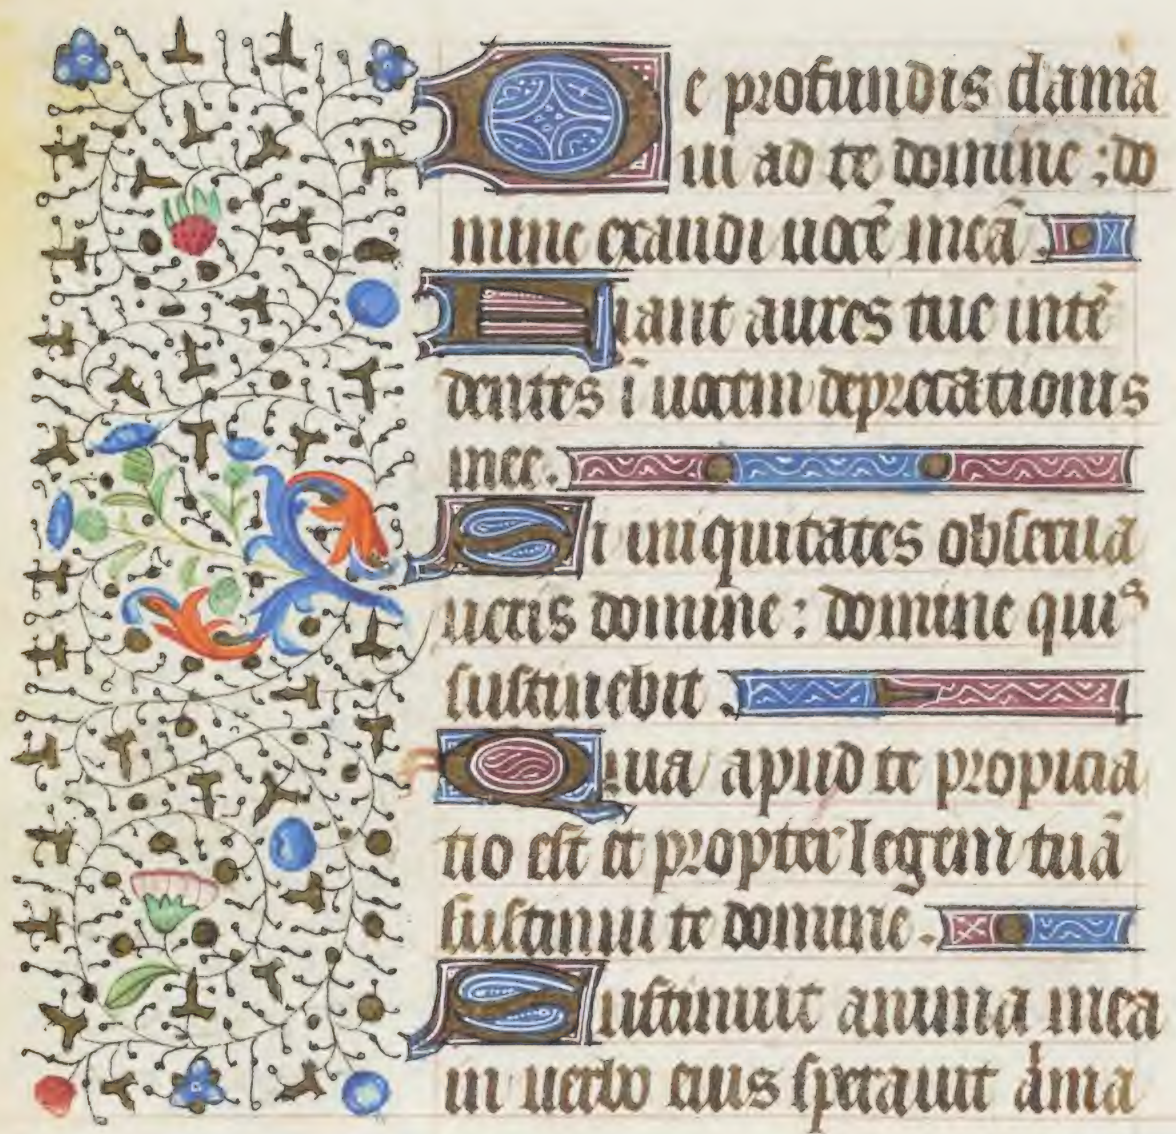 De profundis clama
ui ad te domine : do
mine exaudi uocē meā
Fiant aures tue intē
dentes ī uocem deprecationis
mee.
Si iniquitates obserua
ueris domine : domine quis
sustinebit .
Quia apud te propicia
tio est et propter legem tuā
sustinui te domine .
Sustinuit anima mea
in uerbo eius sperauit aīma